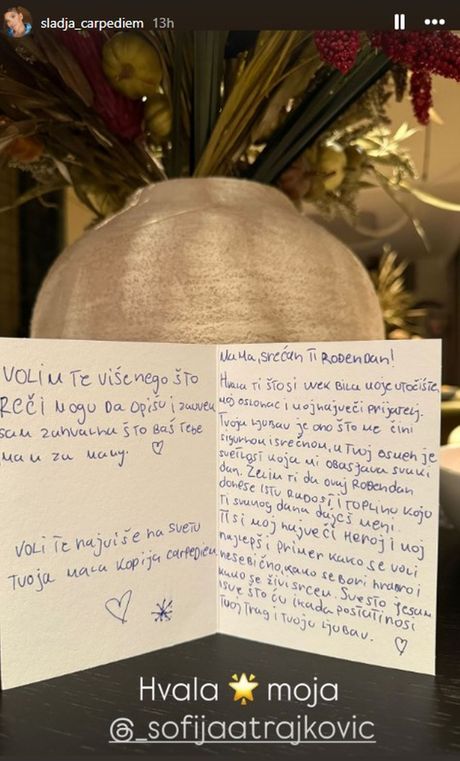 sladja_carpediem 13h
VOLIM TE VIŠE NEGO ŠTO
REČI MOGU DA OPIŠU I ZAUVEK
SAM ZAHVALNA ŠTO BAŠ TEBE
IMAM ZA MAMU. ♡
VOLI TE NAJVIŠE NA SVETU
TVOJA MALA KOPIJA CARPEDIEM
MAMA, SREĆAN TI ROĐENDAN!
HVALA TI ŠTO SI UVEK BILA MOJE UTOČIŠTE,
MOJ OSLONAC I MOJ NAJVEĆI PRIJATELJ.
TVOJA LJUBAV JE ONO ŠTO ME ČINI
SIGURNOM I SREĆNOM, A TVOJ OSMEH JE
SVETLOST KOJA MI OBASJAVA SVAKI
DAN. ŽELIM TI DA OVAJ ROĐENDAN
DONESE ISTU RADOST I TOPLINU KOJU
TI SVAKOG DANA DAJEŠ MENI.
TI SI MOJ NAJVEĆI HEROJ I MOJ
NAJLEPŠI PRIMER KAKO SE VOLI
NESEBIČNO, KAKO SE BORI HRABRO I
KAKO SE ŽIVI SRCEM. SVE ŠTO JESAM
I SVE ŠTO ĆU IKADA POSTATI NOSI
TVOJ TRAG I TVOJU LJUBAV. ♡
Hvala 🌟 moja
@_sofijaatrajkovic